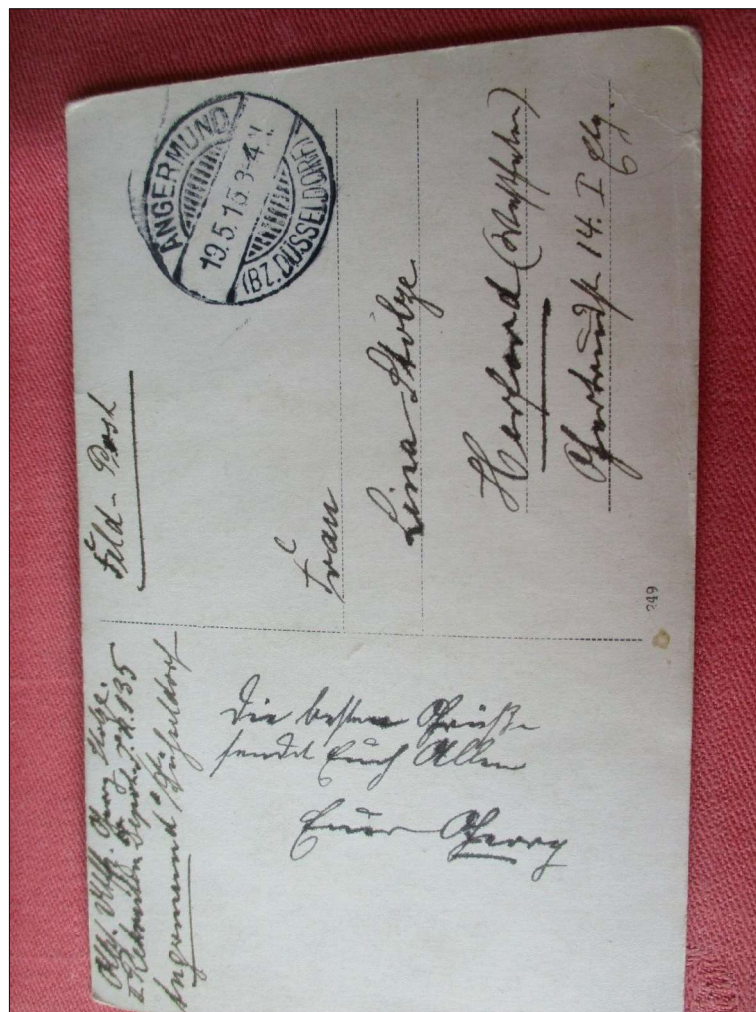 II. Rekruten Depot J. R. 135
Angermund b/ Düsseldorf
Feld-Post
ANGERMUND
19.5.15.3-4 N.
(BZ. DÜSSELDORF)
Die besten Grüße
sendet Euch Allen
Euer Georg
Frau
Lina Stolze
Herford (Westfalen)
14. I Etg.
249